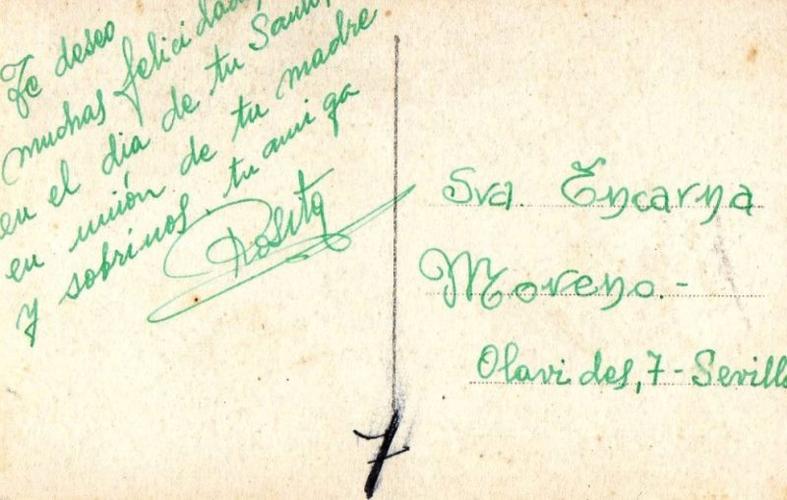 Te deseo
muchas felicidades
en el dia de tu Santo,
en unión de tu madre
y sobrinos, tu amiga
Rosita
Sra. Encarna
Moreno.-
Olavides, 7 - Sevilla
7